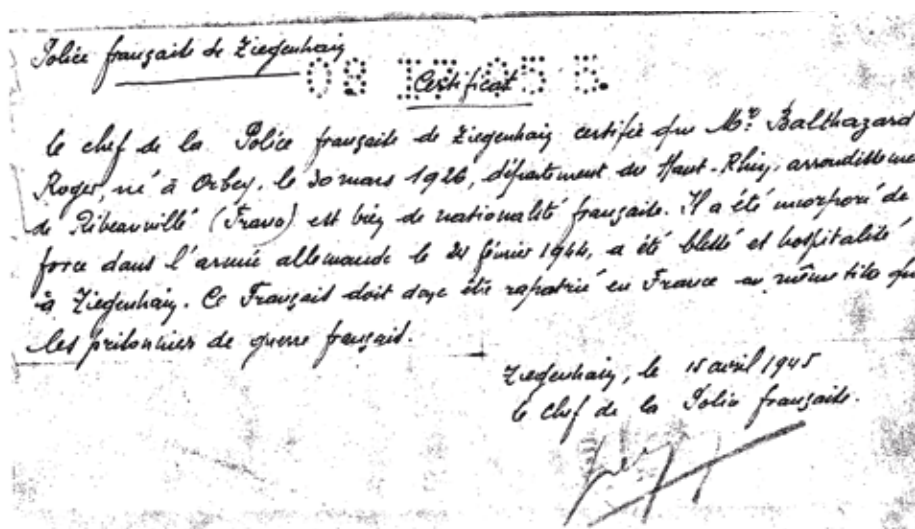 Police française de Ziegenhain
Certificat
le chef de la Police française de Ziegenhain certifie que Mr Balthazard
Roger, né à Orbey, le 30 mars 1926, département du Haut-Rhin, arrondisseme
de Ribeauvillé (France) est bien de nationalité française. Il a été incorporé de
force dans l'armée allemande le février 1944, a été blessé et hospitalisé
à Ziegenhain. Ce Français doit donc être rapatrié en France au même titre que
les prisonniers de guerre français.
Ziegenhain, le 15 avril 1945
le chef de la Police française.